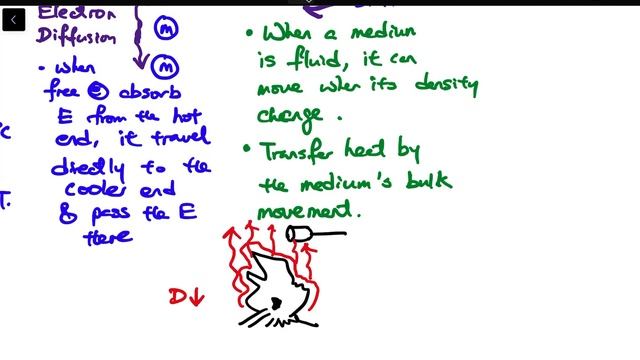 Electron
Diffusion
m
m
• when
free e absorb
E from the hot
end, it travel
directly to the
cooler end
& pass the E
there
• When a medium
is fluid, it can
move when its density
change.
• Transfer heat by
the medium's bulk
movement.
D↓